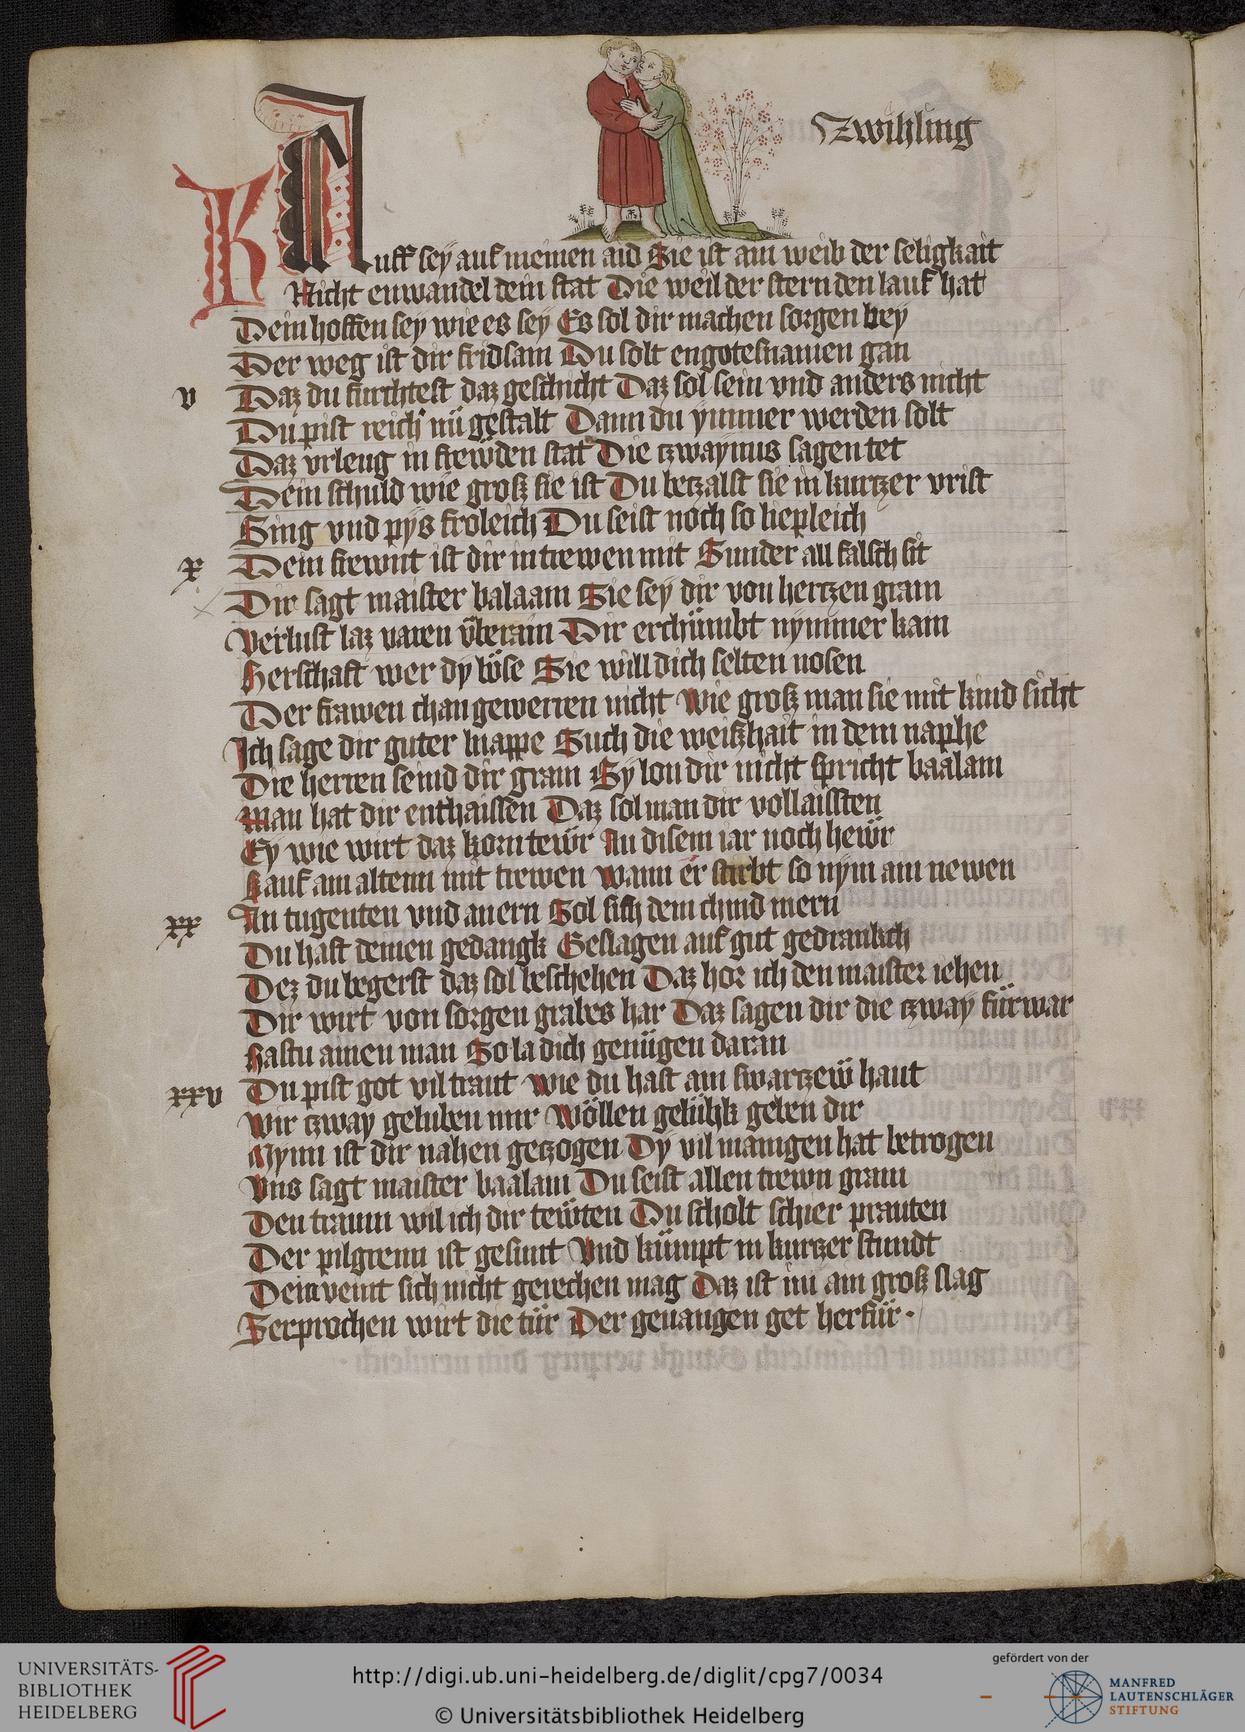 Zwihling
K
Auff sey auf meinen aid Sie ist ain weib der seligkait
Nicht enwandel dein stat Die weil der stern den lauf hat
Dein hoffen sey wie es sey Es sol dir machen sorgen bey
Der weg ist dir fridsam Du solt engotesnamen gan
v Daz du furchtest daz geschicht Daz sol sein vnd anders nicht
Du pist reich nü gestalt Dann du ymmer werden solt
Daz vrleug in frewden stat Die czway mus sagen tet
Dein schuld wie groß sie ist Du beczalst sie in kurczer vrist
Sing vnd pys froleich Du seist noch so liepleich
x Dein frewnt ist dir in trewen mit Sunder all falsch sit
Dir sagt maister balaam Sie sey dir von herczen gram
Verlust laz varen vberain Dir erchumbt nymmer kain
Herschaft wer dy löse Sie will dich selten nosen
Der frawen chan gewerren nicht Wie groß man sie mit kind sicht
Ich sage dir guter knappe Such die weißhait in dem naphe
Die herren seind dir gram Ey lon dir nicht spricht baalam
Man hat dir enthaissen Daz sol man dir vollaissten
Ey wie wirt daz korn tewr An disem iar noch hewr
Kauf ain altenn mit trewen Wann er stirbt so nym ain newen
xx An tugenten vnd an ern Sol sich dein chind mern
Du hast deinen gedangk Geslagen auf gut gedranksch
Dez du begerst daz sol beschehen Daz hor ich den maister iehen
Dir wirt von sorgen grabes har Daz sagen dir die czway fürwar
Hastu ainen man So la dich genügen daran
xxv Du pist got vil traut Wie du hast ain swarczew haut
Wir czway geluben mir Wöllen gelükk geben dir
Mynn ist dir nahen geczogen Dy vil manigen hat betrogen
Vns sagt maister baalam Du seist allen trewn gram
Den traum wil ich dir tewten Du scholt schier prauten
Der pilgreim ist gesunt Vnd kümpt in kurczer stundt
Dein veint sich nicht gerechen mag Daz ist im ain groß slag
Zerprochen wirt die tür Der geuangen get herfür
UNIVERSITÄTS-
BIBLIOTHEK
HEIDELBERG
http://digi.ub.uni-heidelberg.de/diglit/cpg7/0034
© Universitätsbibliothek Heidelberg
gefördert von der
MANFRED
LAUTENSCHLÄGER
STIFTUNG